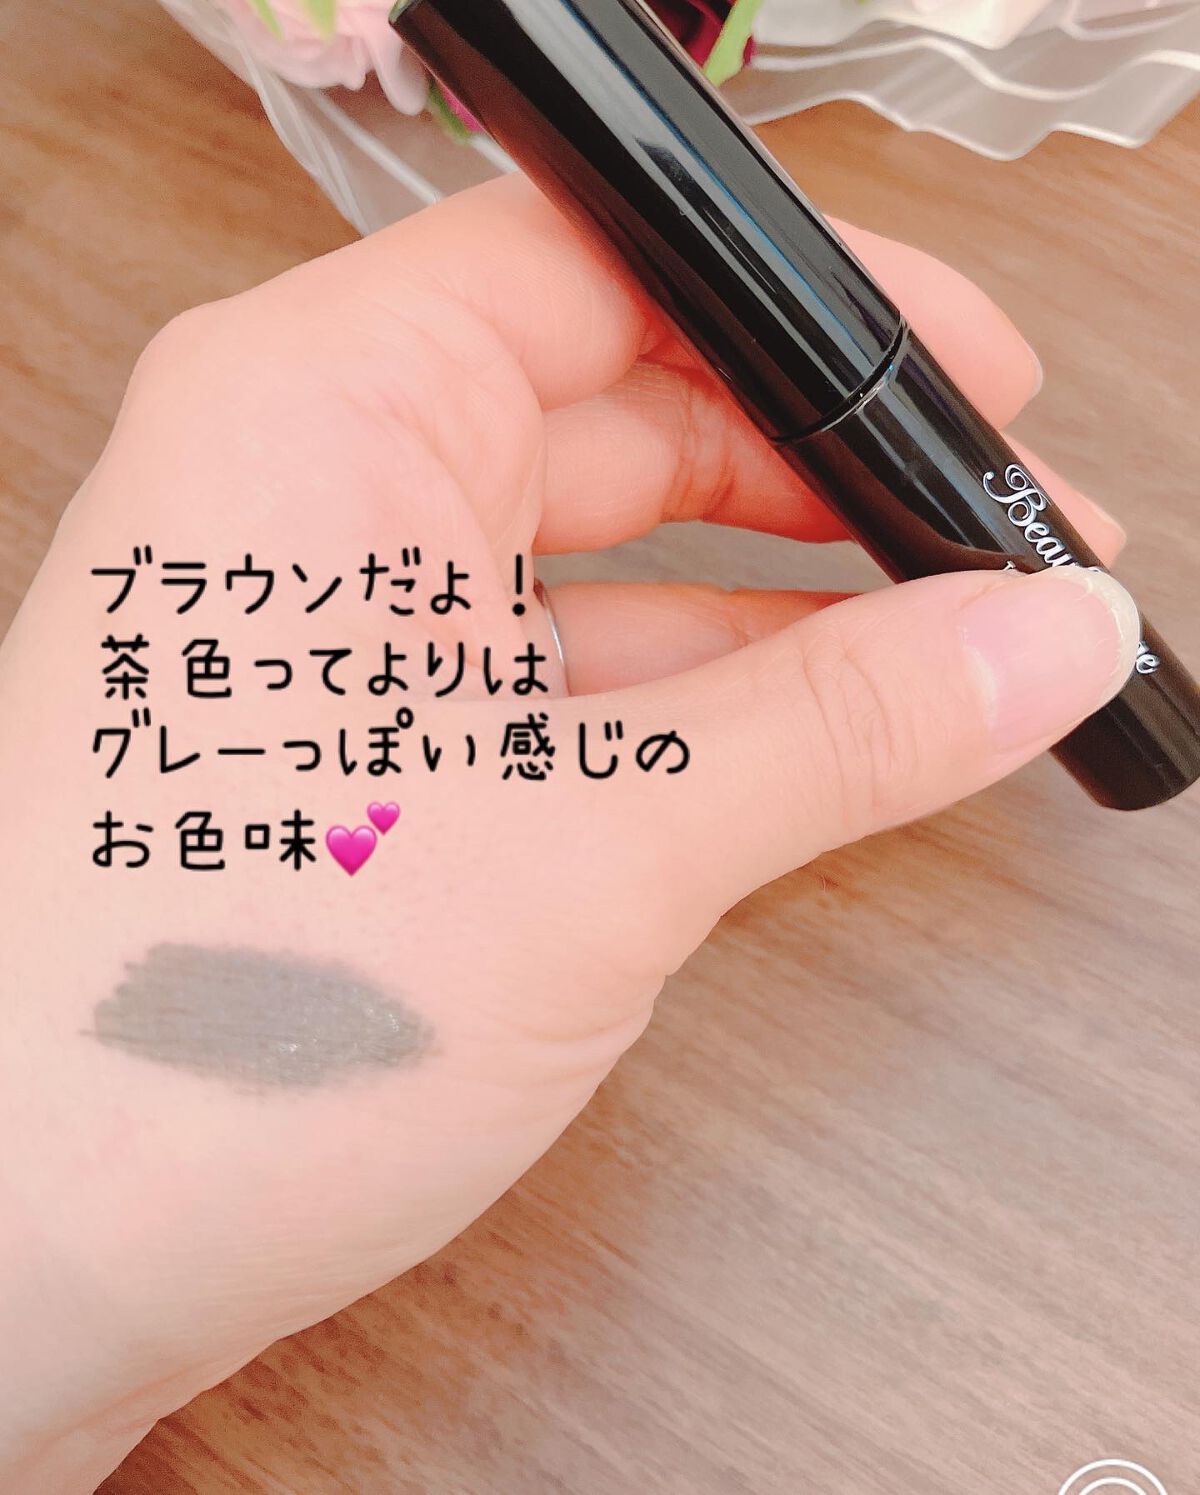 ブラウンだよ！
茶色ってよりは
グレーっぽい感じの
お色味💕